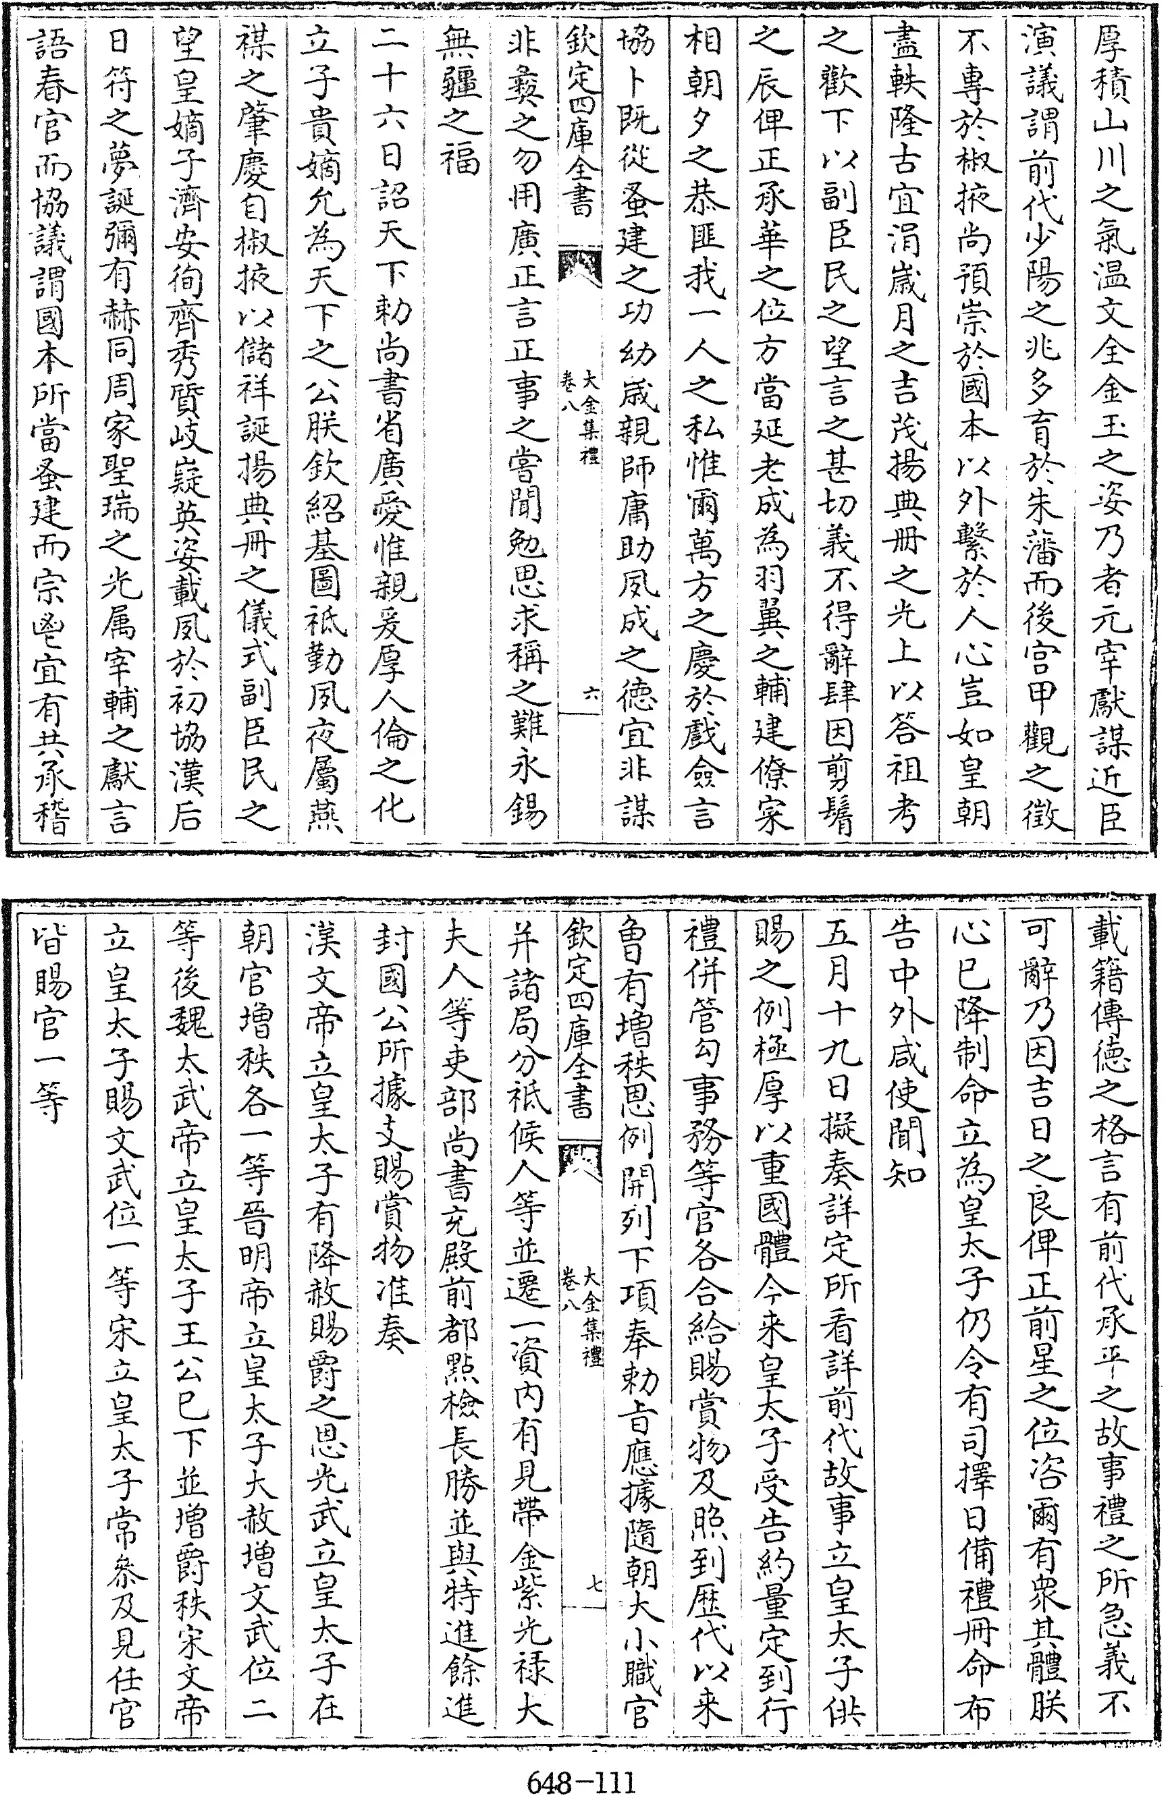 厚積山川之氣温文全金玉之姿乃者元宰獻謀近臣
演議謂前代少陽之兆多育於朱藩而後宮甲觀之徵
不專於椒掖尚預崇於國本以外繫於人心豈如皇朝
盡軼隆古宜涓嵗月之吉茂揚典冊之光上以答祖考
之歡下以副臣民之望言之甚切義不得辭肆因剪鬌
之辰俾正承華之位方當延老成為羽翼之輔建僚寀
相朝夕之恭匪我一人之私惟爾萬方之慶於戲僉言
協卜既從蚤建之功幼嵗親師庸助夙成之徳宜非謀
欽定四庫全書
大金集禮
卷八
六
非彛之勿用廣正言正事之嘗聞勉思求稱之難永錫
無疆之福
二十六日詔天下勅尚書省廣愛惟親爰厚人倫之化
立子貴嫡允為天下之公朕欽紹基圖祗勤夙夜屬燕
禖之肇慶自椒掖以儲祥誕揚典冊之儀式副臣民之
望皇嫡子濟安徇齊秀質岐嶷英姿載夙於初協漢后
日符之夢誕彌有赫同周家聖瑞之光属宰輔之獻言
語春官而協議謂國本所當蚤建而宗鬯宜有共承稽
載籍傳徳之格言有前代承平之故事禮之所急義不
可辭乃因吉日之良俾正前星之位咨爾有衆其體朕
心已降制命立為皇太子仍令有司擇日備禮冊命布
告中外咸使聞知
五月十九日擬奏詳定所看詳前代故事立皇太子供
賜之例極厚以重國體今来皇太子受告約量定到行
禮併管勾事務等官各合給賜賞物及照到歴代以来
魯有增秩恩例開列下項奉勅旨應據隨朝大小職官
欽定四庫全書
大金集禮
卷八
七
并諸局分祗候人等並遷一資内有見帶金紫光禄大
夫人等吏部尚書充殿前都點檢長勝並與特進餘進
封國公所據支賜賞物准奏
漢文帝立皇太子有降赦賜爵之恩光武立皇太子在
朝官增秩各一等晉明帝立皇太子大赦增文武位二
等後魏太武帝立皇太子王公已下並增爵秩宋文帝
立皇太子賜文武位一等宋立皇太子常叅及見任官
皆賜官一等
648-111